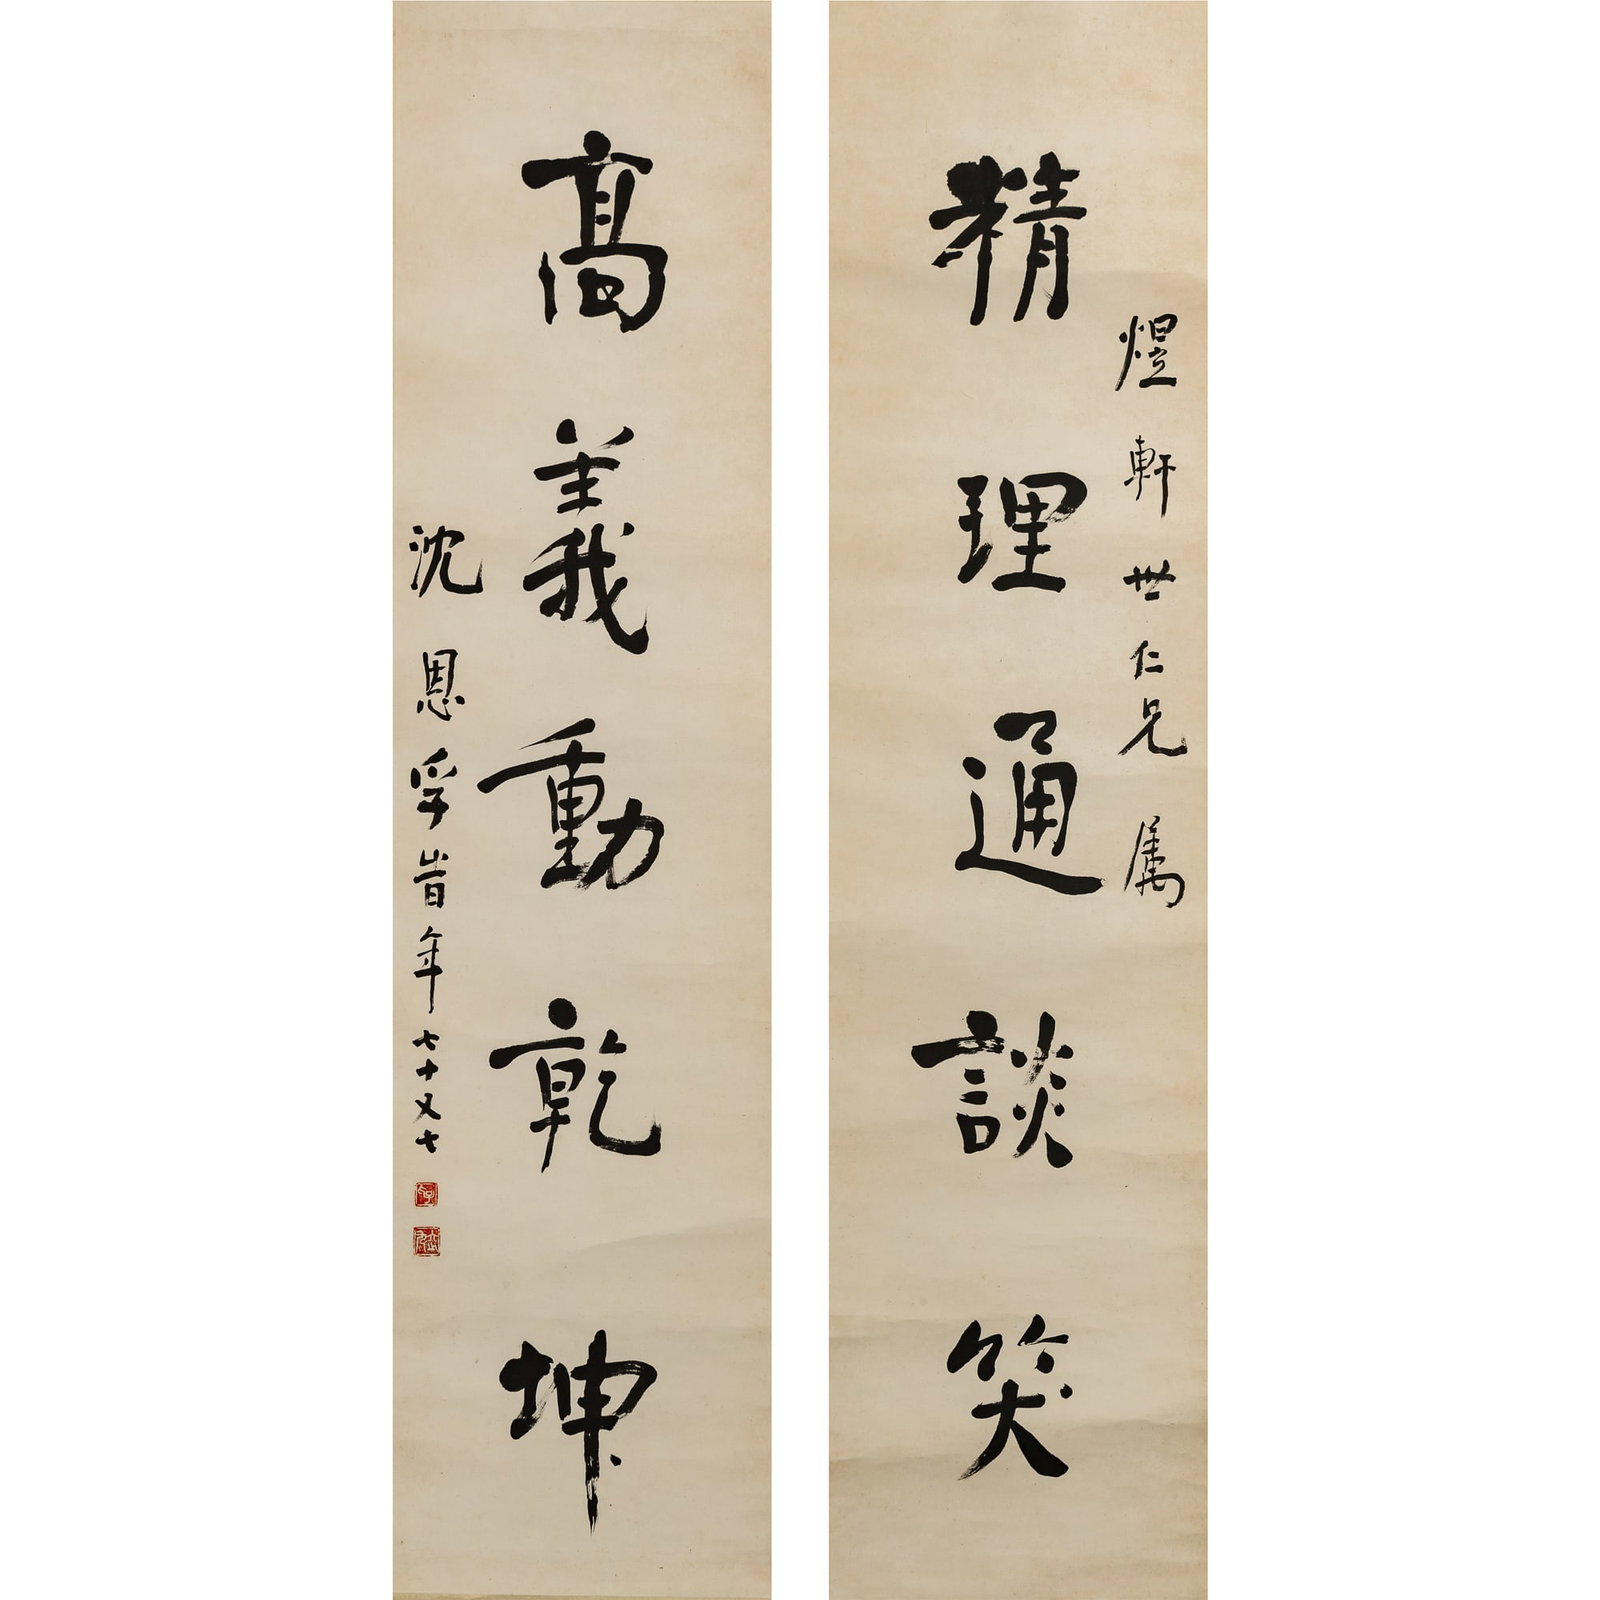 煜軒世仁兄屬
精理通談笑
高義動乾坤
沈恩孚昔年七十又七